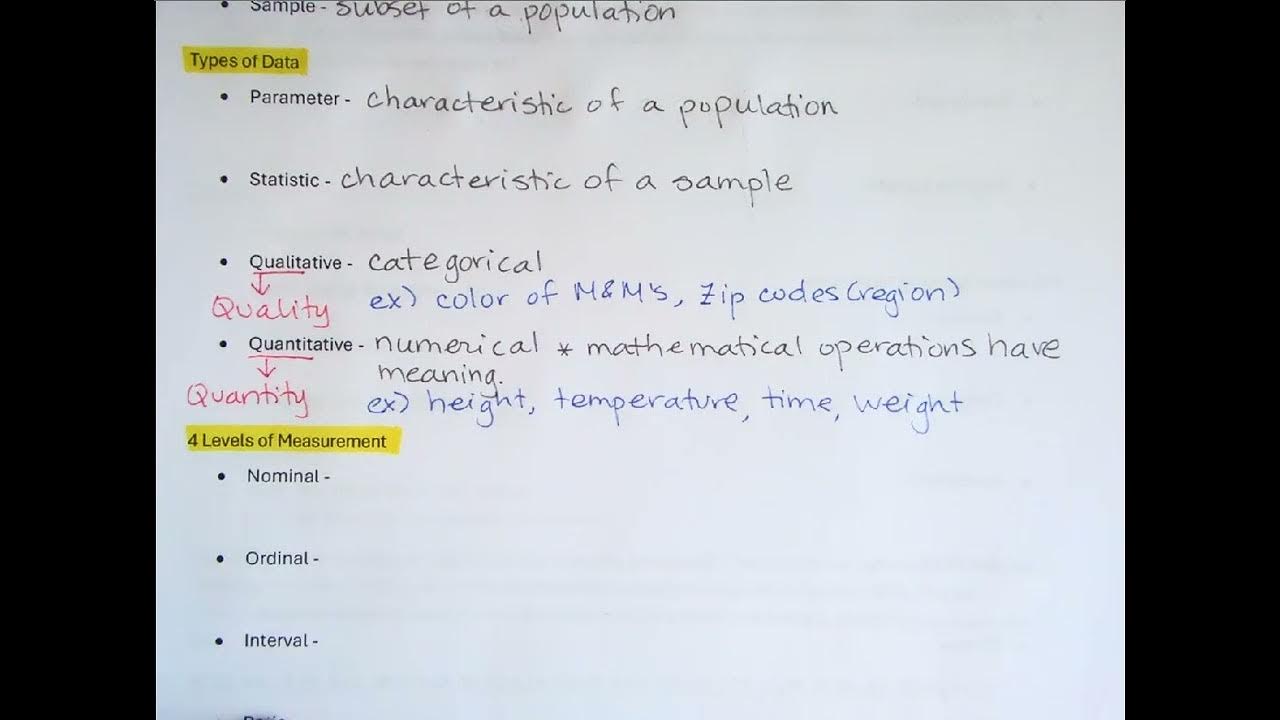 • Sample - subset of a population
Types of Data
• Parameter - characteristic of a population
• Statistic - characteristic of a sample
• Qualitative - categorical
Quality ex) color of M&M's, Zip codes (region)
• Quantitative - numerical * mathematical operations have
meaning.
Quantity ex) height, temperature, time, weight
4 Levels of Measurement
• Nominal -
• Ordinal -
• Interval -